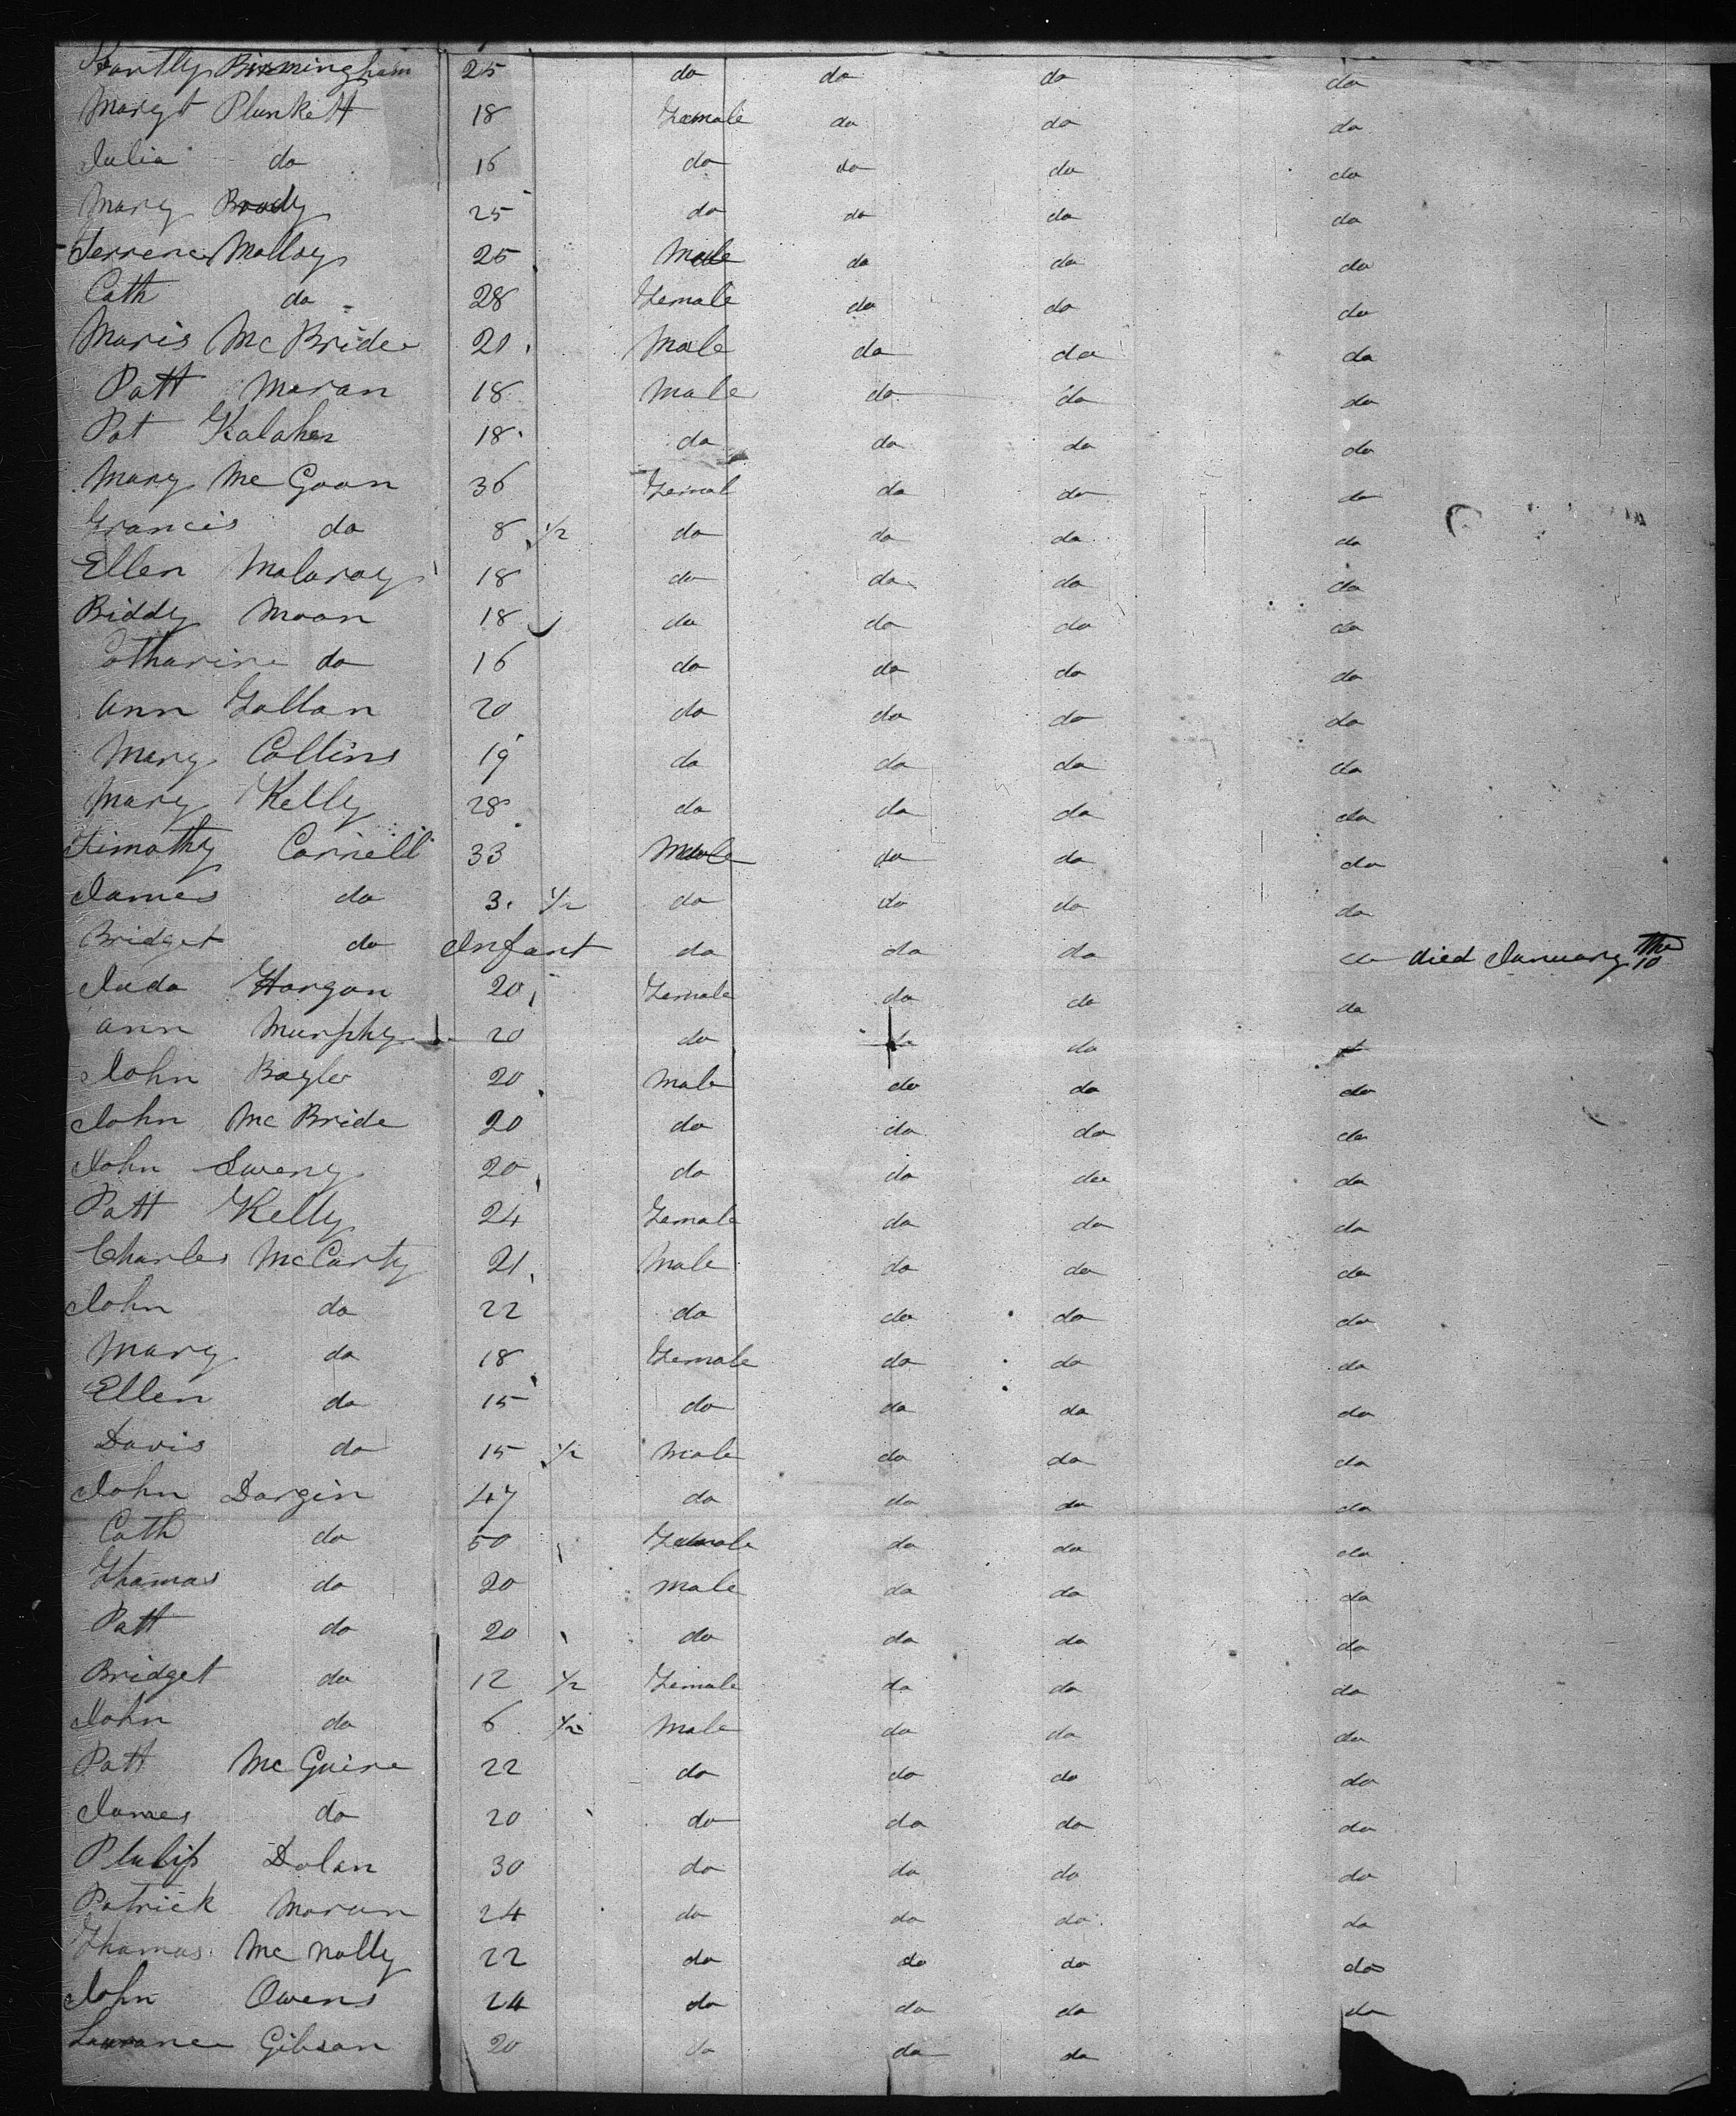 Hartly Birmingham 25 do do do do
Margt Plunkett 18 Female do do do
Julia do 16 do do do do
Mary Brady 25 do do do do
Terrence Malloy 25 Male do do do
Cath do 28 Female do do do
Maris McBride 21 Male do do do
Patt Moran 18 Male do do do
Pat Kalaher 18 do do do do
Mary McGoon 36 Femal do do do
Francis do 8 1/2 do do do do
Ellen Malaray 18 do do do do
Biddy Moon 18 do do do do
Catharine do 16 do do do do
Ann Gallan 20 do do do do
Mary Collins 19 do do do do
Mary Kelly 28 do do do do
Timothy Cornell 33 Male do do do
James do 3 1/2 do do do do
Bridget do Infant do do do do died January 10 The
Juda Hargan 20 Female do do do
Ann Murphy 20 do do do do
John Bayle 20 Male do do do
John McBride 20 do do do do
John Sweny 20 do do do do
Patt Kelly 24 Female do do do
Charles McCarty 21 Male do do do
John do 22 do do do do
Mary do 18 Female do do do
Ellen do 15 do do do do
Davis do 15 1/2 Male do do do
John Dargin 47 do do do do
Cath do 50 Female do do do
Thomas do 20 Male do do do
Patt do 20 do do do do
Bridget do 12 1/2 Female do do do
John do 6 1/2 Male do do do
Patt McGuire 22 do do do do
James do 20 do do do do
Philip Dolan 30 do do do do
Patrick Moran 24 do do do do
Thomas McNally 22 do do do do
John Owens 24 do do do do
Laurance Gibson 20 do do do